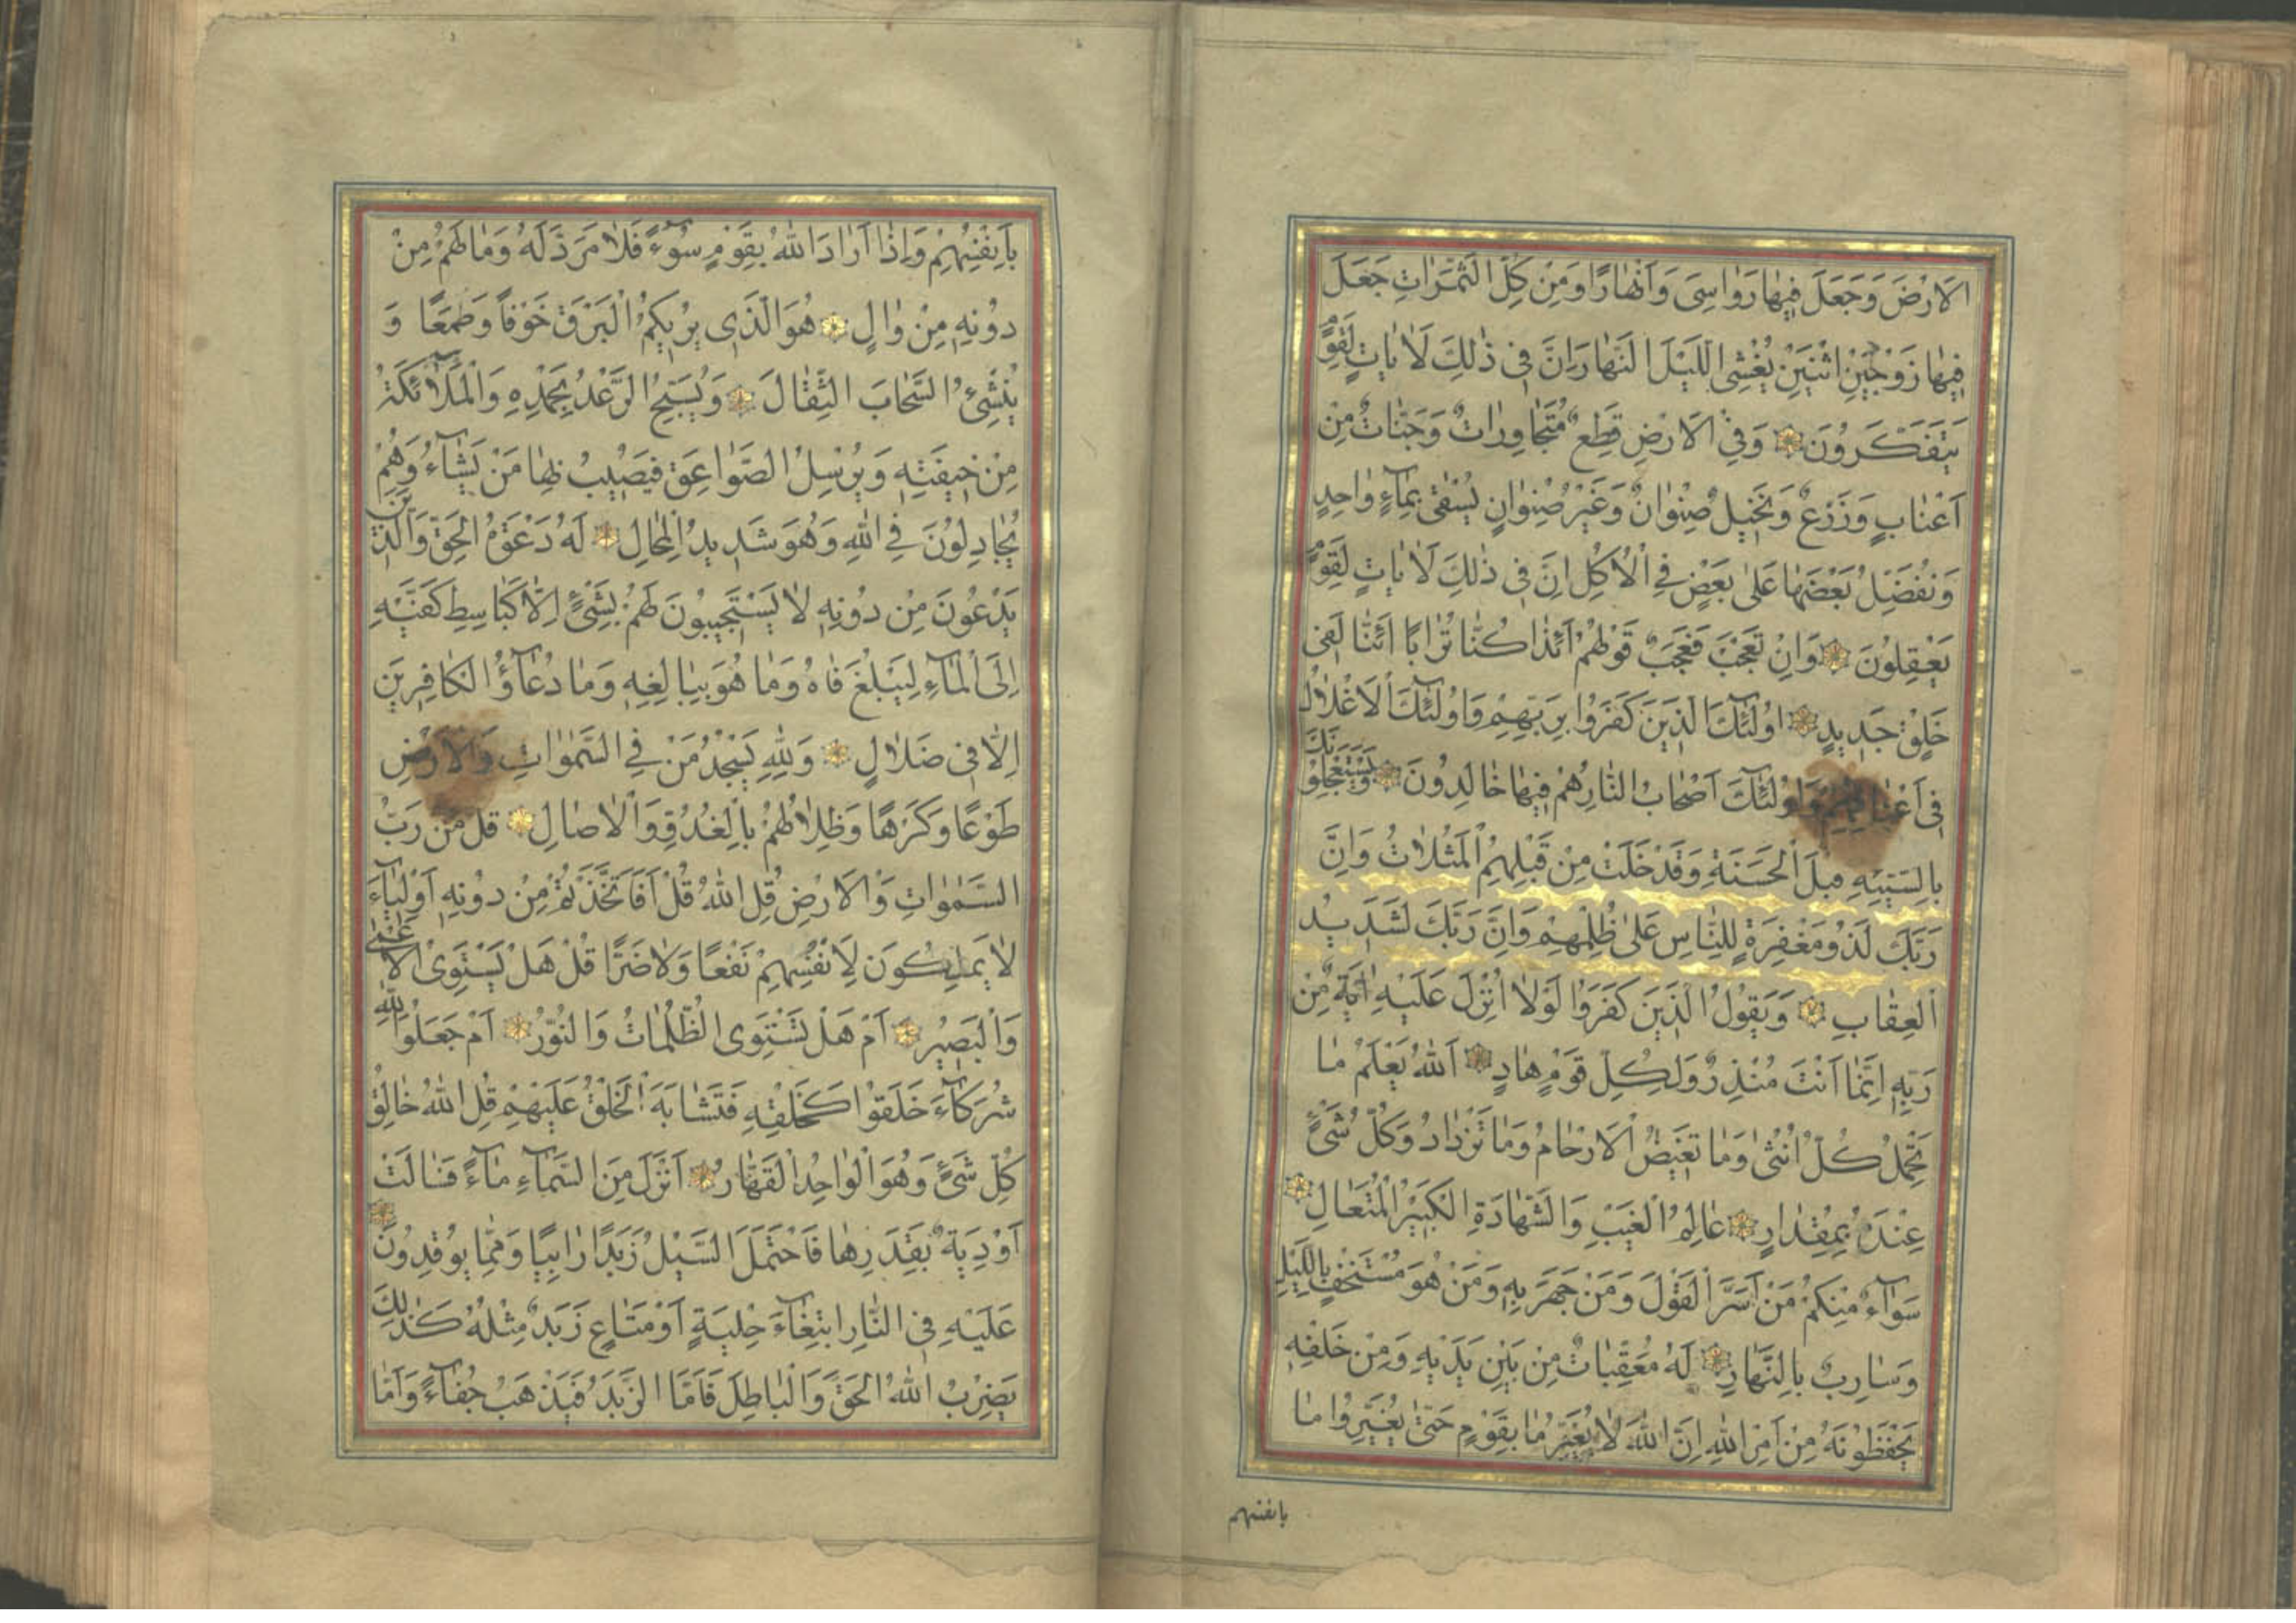 الْاَرْضَ وَجَعَلَ فِيهٰا رَوٰاسِىَ وَاَنْهٰارًا وَمِنْ كُلِّ الثَّمَرٰاتِ جَعَلَ
فِيهٰا زَوْجَيْنِ اثْنَيْنِ يُغْشِى اللَّيْلَ النَّهٰارَ اِنَّ فِى ذٰلِكَ لَاٰيٰاتٍ لِقَوْمٍ
يَتَفَكَّرُونَ وَفِى الْاَرْضِ قِطَعٌ مُتَجٰاوِرٰاتٌ وَجَنّٰاتٌ مِنْ
اَعْنٰابٍ وَزَرْعٌ وَنَخِيلٌ صِنْوٰانٌ وَغَيْرُ صِنْوٰانٍ يُسْقٰى بِمٰآءٍ وٰاحِدٍ
وَنُفَضِّلُ بَعْضَهٰا عَلٰى بَعْضٍ فِى الْاُكُلِ اِنَّ فِى ذٰلِكَ لَاٰيٰاتٍ لِقَوْمٍ
يَعْقِلُونَ وَاِنْ تَعْجَبْ فَعَجَبٌ قَوْلُهُمْ اَئِذٰا كُنّٰا تُرٰابًا اَئِنّٰا لَفِى
خَلْقٍ جَدِيدٍ اُولٰٓئِكَ الَّذِينَ كَفَرُوا بِرَبِّهِمْ وَاُولٰٓئِكَ الْاَغْلٰالُ
فِى اَعْنٰاقِهِمْ وَاُولٰٓئِكَ اَصْحٰابُ النّٰارِ هُمْ فِيهٰا خٰالِدُونَ وَيَسْتَعْجِلُونَكَ
بِالسَّيِّئَةِ قَبْلَ الْحَسَنَةِ وَقَدْ خَلَتْ مِنْ قَبْلِهِمُ الْمَثُلٰاتُ وَاِنَّ
رَبَّكَ لَذُو مَغْفِرَةٍ لِلنّٰاسِ عَلٰى ظُلْمِهِمْ وَاِنَّ رَبَّكَ لَشَدِيدُ
الْعِقٰابِ وَيَقُولُ الَّذِينَ كَفَرُوا لَوْلٰا اُنْزِلَ عَلَيْهِ اٰيَةٌ مِنْ
رَبِّهِ اِنَّمٰا اَنْتَ مُنْذِرٌ وَلِكُلِّ قَوْمٍ هٰادٍ اَللّٰهُ يَعْلَمُ مٰا
تَحْمِلُ كُلُّ اُنْثٰى وَمٰا تَغِيضُ الْاَرْحٰامُ وَمٰا تَزْدٰادُ وَكُلُّ شَىْءٍ
عِنْدَهُ بِمِقْدٰارٍ عٰالِمُ الْغَيْبِ وَالشَّهٰادَةِ الْكَبِيرُ الْمُتَعٰالِ
سَوٰآءٌ مِنْكُمْ مَنْ اَسَرَّ الْقَوْلَ وَمَنْ جَهَرَ بِهِ وَمَنْ هُوَ مُسْتَخْفٍ بِاللَّيْلِ
وَسٰارِبٌ بِالنَّهٰارِ لَهُ مُعَقِّبٰاتٌ مِنْ بَيْنِ يَدَيْهِ وَمِنْ خَلْفِهِ
يَحْفَظُونَهُ مِنْ اَمْرِ اللّٰهِ اِنَّ اللّٰهَ لٰا يُغَيِّرُ مٰا بِقَوْمٍ حَتّٰى يُغَيِّرُوا مٰا
بانفسهم
بِاَنْفُسِهِمْ وَاِذٰا اَرٰادَ اللّٰهُ بِقَوْمٍ سُوٓءً فَلٰا مَرَدَّ لَهُ وَمٰا لَهُمْ مِنْ
دُونِهِ مِنْ وٰالٍ هُوَ الَّذِى يُرِيكُمُ الْبَرْقَ خَوْفًا وَطَمَعًا وَ
يُنْشِئُ السَّحٰابَ الثِّقٰالَ وَيُسَبِّحُ الرَّعْدُ بِحَمْدِهِ وَالْمَلٰٓائِكَةُ
مِنْ خِيفَتِهِ وَيُرْسِلُ الصَّوٰاعِقَ فَيُصِيبُ بِهٰا مَنْ يَشٰآءُ وَهُمْ
يُجٰادِلُونَ فِى اللّٰهِ وَهُوَ شَدِيدُ الْمِحٰالِ لَهُ دَعْوَةُ الْحَقِّ وَالَّذِينَ
يَدْعُونَ مِنْ دُونِهِ لٰا يَسْتَجِيبُونَ لَهُمْ بِشَىْءٍ اِلّٰا كَبٰاسِطِ كَفَّيْهِ
اِلَى الْمٰآءِ لِيَبْلُغَ فٰاهُ وَمٰا هُوَ بِبٰالِغِهِ وَمٰا دُعٰآؤُ الْكٰافِرِينَ
اِلّٰا فِى ضَلٰالٍ وَلِلّٰهِ يَسْجُدُ مَنْ فِى السَّمٰوٰاتِ وَالْاَرْضِ
طَوْعًا وَكَرْهًا وَظِلٰالُهُمْ بِالْغُدُوِّ وَالْاٰصٰالِ قُلْ مَنْ رَبُّ
السَّمٰوٰاتِ وَالْاَرْضِ قُلِ اللّٰهُ قُلْ اَفَاتَّخَذْتُمْ مِنْ دُونِهِ اَوْلِيٰآءَ
لٰا يَمْلِكُونَ لِاَنْفُسِهِمْ نَفْعًا وَلٰا ضَرًّا قُلْ هَلْ يَسْتَوِى الْاَعْمٰى
وَالْبَصِيرُ اَمْ هَلْ تَسْتَوِى الظُّلُمٰاتُ وَالنُّورُ اَمْ جَعَلُوا لِلّٰهِ
شُرَكٰآءَ خَلَقُوا كَخَلْقِهِ فَتَشٰابَهَ الْخَلْقُ عَلَيْهِمْ قُلِ اللّٰهُ خٰالِقُ
كُلِّ شَىْءٍ وَهُوَ الْوٰاحِدُ الْقَهّٰارُ اَنْزَلَ مِنَ السَّمٰآءِ مٰآءً فَسٰالَتْ
اَوْدِيَةٌ بِقَدَرِهٰا فَاحْتَمَلَ السَّيْلُ زَبَدًا رٰابِيًا وَمِمّٰا يُوقِدُونَ
عَلَيْهِ فِى النّٰارِ ابْتِغٰآءَ حِلْيَةٍ اَوْ مَتٰاعٍ زَبَدٌ مِثْلُهُ كَذٰلِكَ
يَضْرِبُ اللّٰهُ الْحَقَّ وَالْبٰاطِلَ فَاَمَّا الزَّبَدُ فَيَذْهَبُ جُفٰآءً وَاَمّٰا